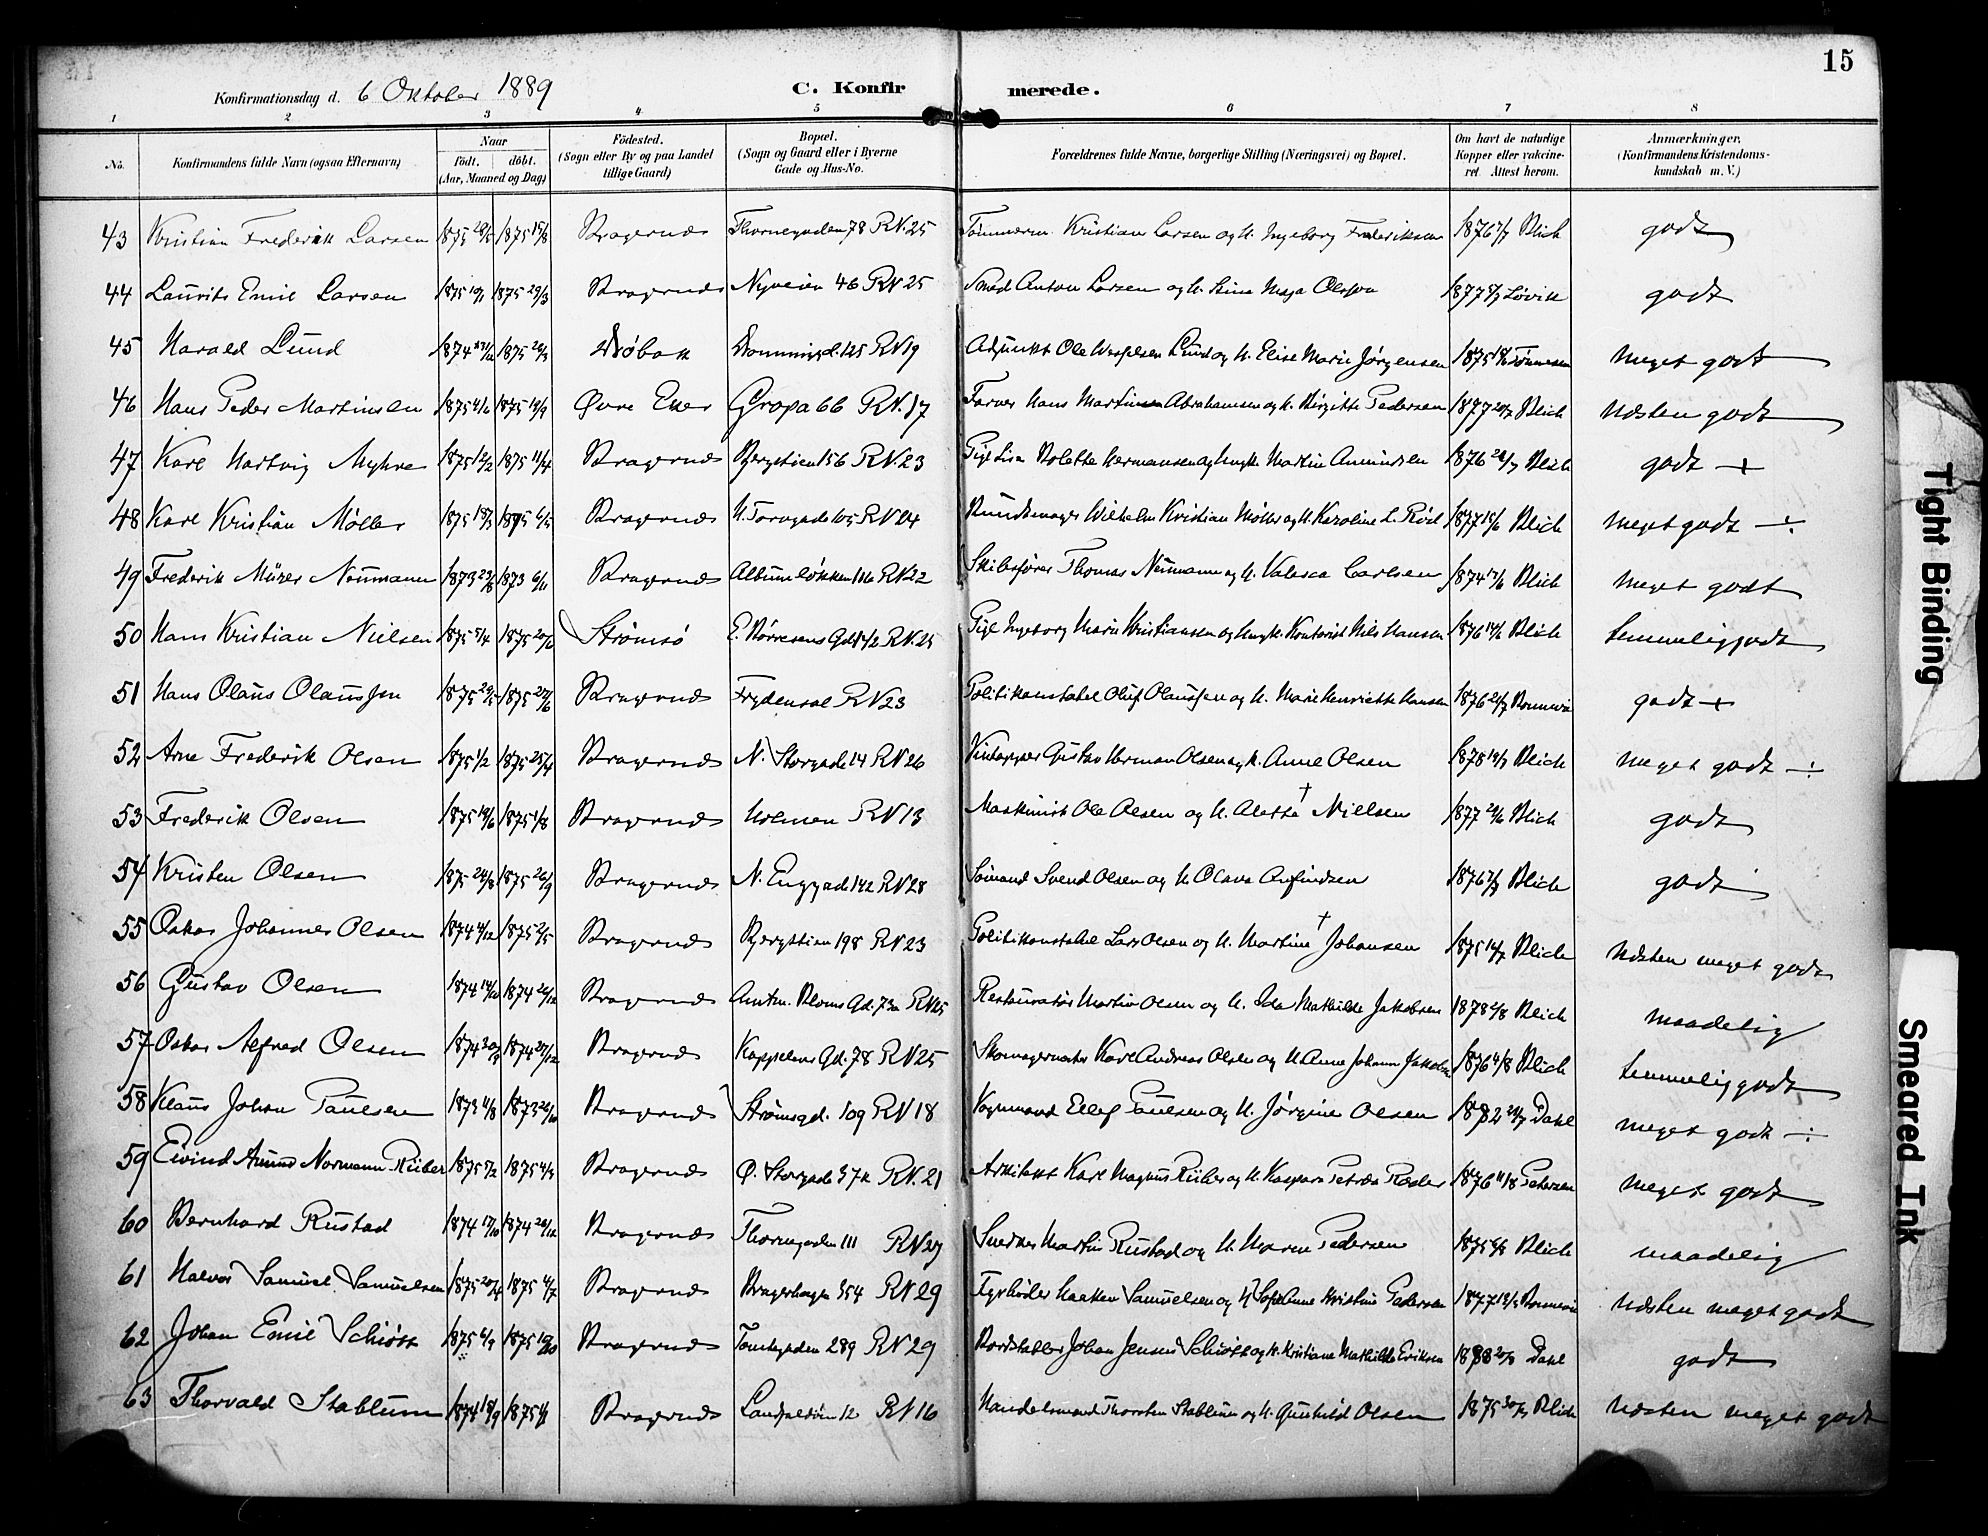 15
Konfirmationsdag d. 6 Oktober 1889 C. Konfirmerede.
1 2 3 4 5 6 7 8
No. Konfirmandens fulde Navn (ogsaa Efternavn) Naar födt. döbt. (Aar, Maaned og Dag) Födested. (Sogn eller By og paa Landet tillige Gaard) Bopæl. (Sogn og Gaard eller i Byerne Gade og Hus-No. Forældrenes fulde Navne, borgerlige Stilling (Næringsvei) og Bopæl. Om havt de naturlige Kopper eller vakcineret. Attest herom. Anmærkninger, (Konfirmandens Kristendomskundskab m. V.)
43 Kristian Frederik Larsen 1875 1875 15/8 Bragernæs Thornegaden 78 RN. 25 Tömmerm. Kristian Larsen og H. Ingeborg Frederiksen 1876 Blich godt
44 Laurits Emil Larsen 1875 1875 29/3 Bragernæs Nyveien 46 RN 25 Smed Anton Larsen og H. Stina Maja Olsson 1877 Løvik godt
45 Harald Lund 1874 1875 Drøbak 125 RN 19 Adjunkt Ole Lund og H. Elise Marie Jørgensen 1875 Tønnesen meget godt
46 Hans Peder Martinsen 1875 1875 19/9 Øvre Eker Gropa 66 RN. 17 Farver Hans Martin Abrahamsen og H. Birgitte Pedersen 1877 Blich næsten godt
47 Karl Hartvig Myhre 1875 12/2 1875 11/4 Bragernæs Bergstien 156 RN. 23 Pige Lisa Bolette Hermansen og Ungk. Martin Amundsen 1876 Blich godt +
48 Karl Kristian Møller 1875 18/3 1875 6/5 Bragernæs N. Torvgade 105 RN 24 Buntmager Wilhelm Kristian Møller og H. Karoline L. Röd 1877 15/6 Blich meget godt ÷
49 Frederik Mürer Neumann 1873 1873 6/11 Bragernæs Albumsløkken 116 RN 22 Skibsfører Thomas Neumann og H. Valesca Carlsen 1874 Blich meget godt
50 Hans Kristian Nielsen 1875 5/4 1875 20/6 Strömsö E. Börresens Gd. RN. 25 Pige Ingeborg Marie Kristiansen og Ungk. Kontorist Nils Hansen 1876 14/6 Blich temmelig godt
51 Hans Olaus Olaussen 1875 1875 27/6 Bragernæs Frydensal RN 23 Politikonstabel Oluf Olaussen og H. Marie Henriette Hansen 1876 godt +
52 Arne Frederik Olsen 1875 1/2 1875 25/4 Bragernæs N. Storgade 14 RN 26 Vintapper Gustav Herman Olsen og H. Anne Olsen 1878 Blich meget godt ÷
53 Frederik Olsen 1875 1875 1/8 Bragernæs Holmen RN 13 Maskinist Ole Olsen og H. Alette † Nielsen 1877 Blich godt
54 Kristen Olsen 1875 24/8 1875 26/9 Bragernæs N. Enggade 142 RN 28 Sömand Svend Olsen og H. Olava Arfindsen 1876 Blich godt
55 Oskar Johannes Olsen 1874 4/12 1875 2/5 Bragernæs Bergstien 198 RN 23 Politikonstabel Lars Olsen og H. Martine † Johansen 1875 14/7 Blich næsten meget godt
56 Gustav Olsen 1874 14/10 1874 26/12 Bragernæs Amtm. Bloms Gd. 73a RN 25 Restauratör Martin Olsen og H. Ida Mathilde Jakobsen 1878 Blich maadelig
57 Oskar Alfred Olsen 1874 1874 27/12 Bragernæs Kappelens Gd. 78 RN 25 Skomagermester Karl Andreas Olsen og H. Anne Johanne Jakobsen 1876 4/8 Blich temmelig godt
58 Klaus Johan Paulsen 1873 11/8 1873 26/10 Bragernæs Strömsgd. 109 RN 18 Vognmand Ellef Paulsen og H. Jörgine Olsen 1882 Dahl meget godt ÷
59 Eivind Amund Normann Riiber 1875 5/2 1875 4/3 Bragernæs Ø. Storgade 37a RN. 21 Arkitekt Karl Magnus Riiber og H. Kaspara Petrea Ræder 1876 11/8 Petersen meget godt
60 Bernhard Rustad 1874 17/10 1874 26/12 Bragernæs Thornegaden 111 RN 27 Snedker Martin Rustad og H. Maren Pedersen 1875 Blich maadelig
61 Halvor Samuel Samuelsen 1875 20/4 1875 4/7 Bragernæs Bragerhagen 354 RN 29 Fyrböder Haaken Samuelsen og H. Sofie Anne Kristine Pedersen 1877 næsten meget godt
62 Johan Emil Schiött 1875 6/9 1875 Bragernæs Tomtegaden 289 RN 29 Bordstabler Johan Jensen Schiött og H. Kristiane Mathilde Eriksen 1888 Dahl godt
63 Thorvald Stablum 1874 18/9 1875 Bragernæs Landfaldöen 12 RN 16 Handelsmand Thorsten Stablum og H. Gunhild Olsen 1875 Blich næsten meget godt
Tight Binding
Smeared Ink